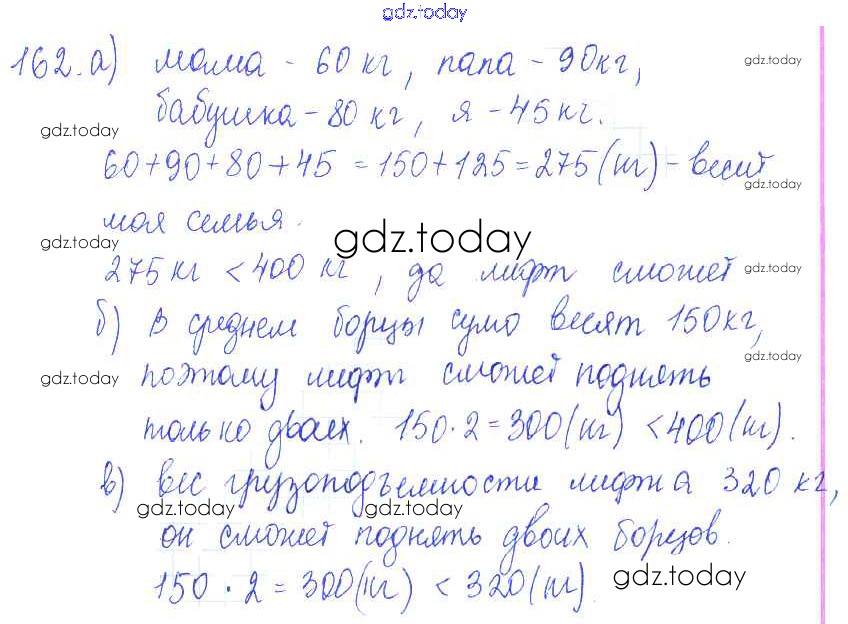 gdz.today
162. а) мама - 60 кг, папа - 90 кг,
gdz.today
бабушка - 80 кг, я - 45 кг.
gdz.today
60+90+80+45 = 150+125 = 275 (кг) - весит
gdz.today
моя семья.
gdz.today
gdz.today
275 кг < 400 кг, да лифт сможет
gdz.today
б) В среднем борцы сумо весят 150 кг,
gdz.today
поэтому лифт сможет поднять
gdz.today
только двоих. 150 · 2 = 300 (кг) < 400 (кг).
в) вес грузоподъемности лифта 320 кг,
gdz.today
gdz.today
он сможет поднять двоих борцов.
150 · 2 = 300 (кг) < 320 (кг)
gdz.today